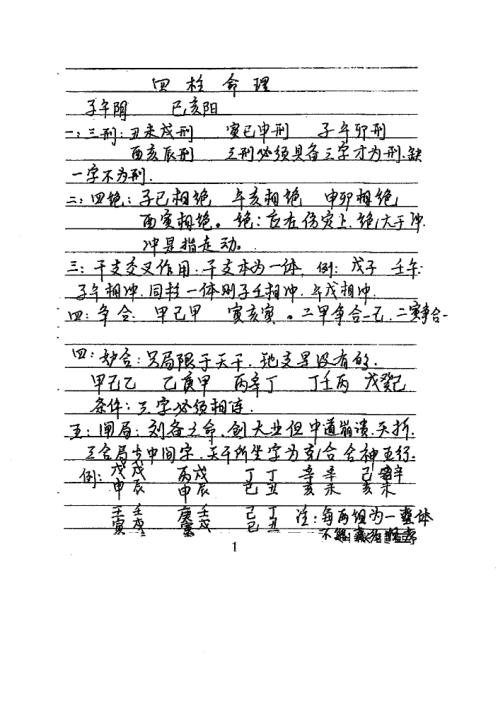 四柱命理
子午阴 巳亥阳
一:三刑:丑未戌刑 寅巳申刑 子午卯刑
酉亥辰刑 三刑必须具备三字才为刑.缺
一字不为刑.
二:四绝:子巳相绝 午亥相绝 申卯相绝
酉寅相绝。绝:应在伤灾上.绝大于冲
冲是指走动。
三:干支交叉作用.干支本为一体.例:戊子 壬午
子午相冲.同柱一体则子壬相冲.午戊相冲.
四:争合:甲己甲 寅亥寅。二甲争合一己.二寅争合一
四:妒合:只局限于天干.地支是没有的.
甲己乙 乙庚甲 丙辛丁 丁壬丙 戊癸己
条件:三字必须相连.
五:闸局:刘备之命.创大业但中道崩溃.夭折.
三合局去中间字.天干所坐字为克合合神五行.
例:戊戌 丙戊 丁丁 辛辛 己辛
申辰 申辰 巳丑 亥未 亥未
壬壬 庚壬 己丁 注:每两组为一整体
寅戌 寅戌 巳丑
1